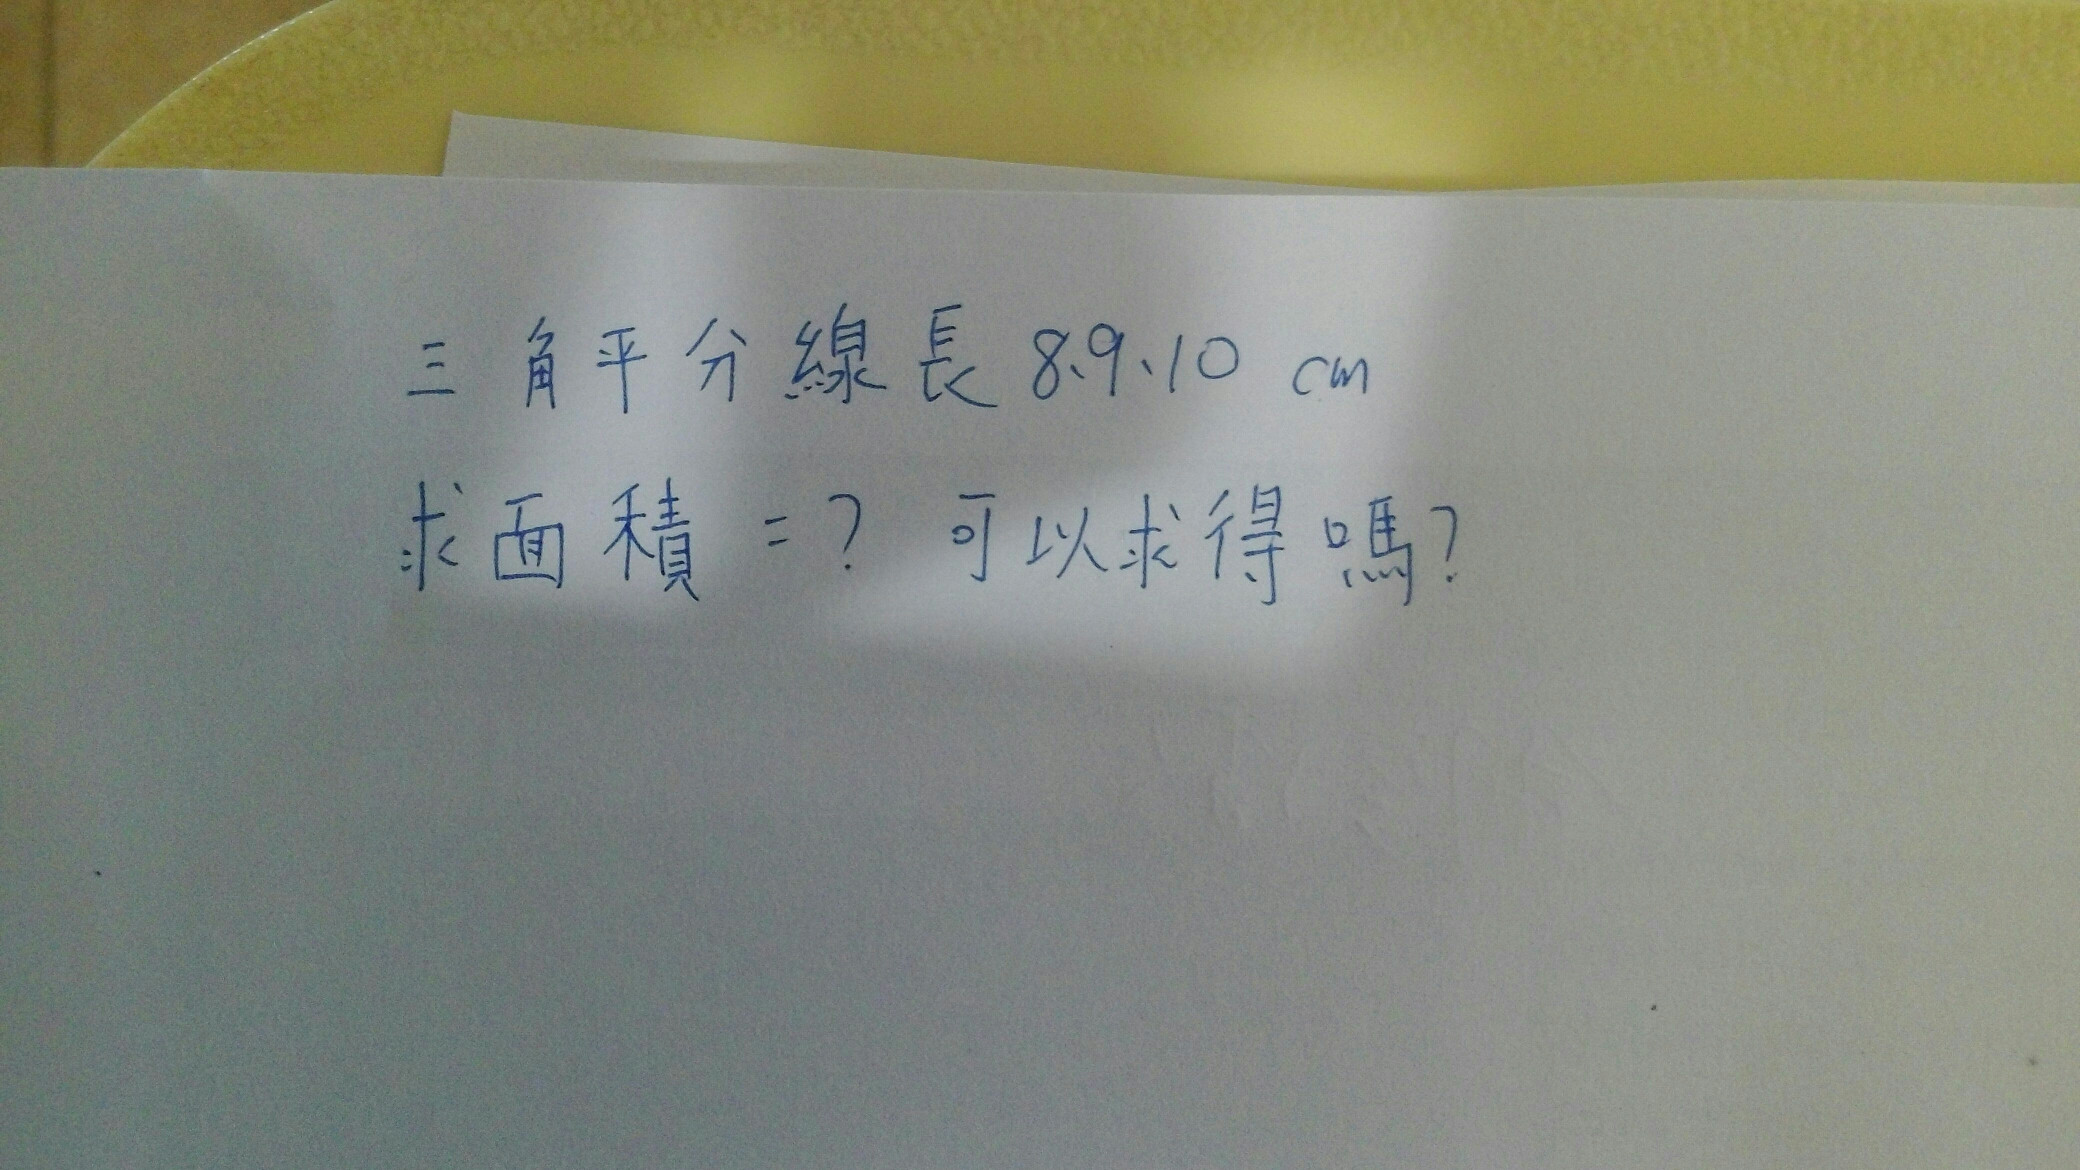 三角平分線長8、9、10 cm
求面積=? 可以求得嗎?